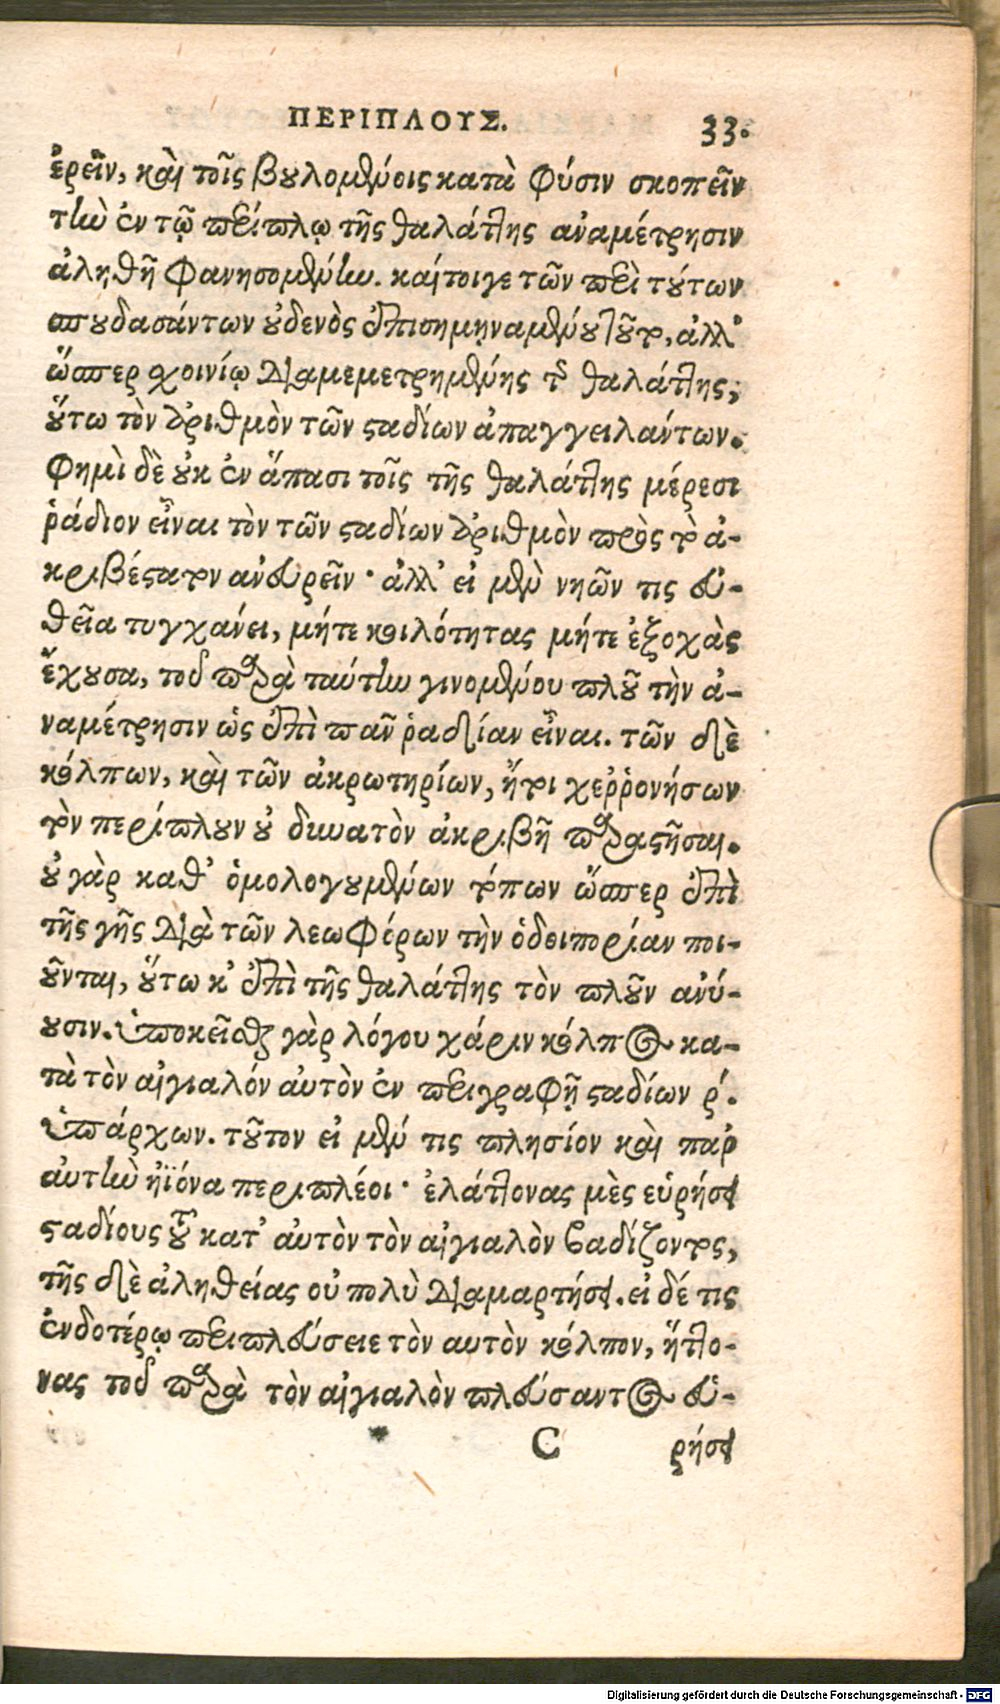 ΠΕΡΙΠΛΟΥΣ. 33.
ἐρεῖν, καὶ τοῖς βουλομένοις κατὰ φύσιν σκοπεῖν
τὴν ἐν τῷ περίπλῳ τῆς θαλάττης ἀναμέτρησιν
ἀληθῆ φανησομένην. καίτοιγε τῶν περὶ τούτων
σπουδασάντων οὐδενὸς ἐπισημηναμένου τοῦτο, ἀλλ'
ὥσπερ σχοινίῳ διαμεμετρημένης τῆς θαλάττης,
οὕτω τὸν ἀριθμὸν τῶν σταδίων ἀπαγγειλάντων.
Φημὶ δὲ οὐκ ἐν ἅπασι τοῖς τῆς θαλάττης μέρεσι
ῥάδιον εἶναι τὸν τῶν σταδίων ἀριθμὸν πρὸς τὸ ἀ-
κριβέστατον ἀνευρεῖν· ἀλλ' εἰ μὲν νηῶν τις εὐ-
θεῖα τυγχάνει, μήτε κοιλότητας μήτε ἐξοχὰς
ἔχουσα, τοῦ παρὰ ταύτην γινομένου πλοῦ τὴν ἀ-
ναμέτρησιν ὡς ἐπὶ πᾶν ῥαδίαν εἶναι. τῶν δὲ
κόλπων, καὶ τῶν ἀκρωτηρίων, ἤτοι χεῤῥονήσων
τὸν περίπλουν οὐ δυνατὸν ἀκριβῆ παραστῆσαι.
οὐ γὰρ καθ' ὁμολογουμένων τόπων ὥσπερ ἐπὶ
τῆς γῆς διὰ τῶν λεωφόρων τὴν ὁδοιπορίαν ποι-
οῦνται, οὕτω κ' ἐπὶ τῆς θαλάττης τὸν πλοῦν ἀνύ-
ουσιν. ὑποκείσθω γὰρ λόγου χάριν κόλπος κα-
τὰ τὸν αἰγιαλόν αὐτὸν ἐν περιγραφῇ σταδίων ρ΄.
ὑπάρχων. τοῦτον εἰ μέν τις πλησίον καὶ παρ'
αὐτὴν ἠϊόνα περιπλέοι· ἐλάττονας μὲς εὑρήσει
σταδίους τοῦ κατ' αὐτὸν τὸν αἰγιαλὸν βαδίζοντος,
τῆς δὲ ἀληθείας οὐ πολὺ διαμαρτήσει. εἰ δέ τις
ἐνδοτέρῳ περιπλεύσειε τὸν αυτὸν κόλπον, ἥττο-
νας τοῦ παρὰ τὸν αἰγιαλὸν πλεύσαντος εὑ-
C ρήσει
Digitalisierung gefördert durch die Deutsche Forschungsgemeinschaft - DFG